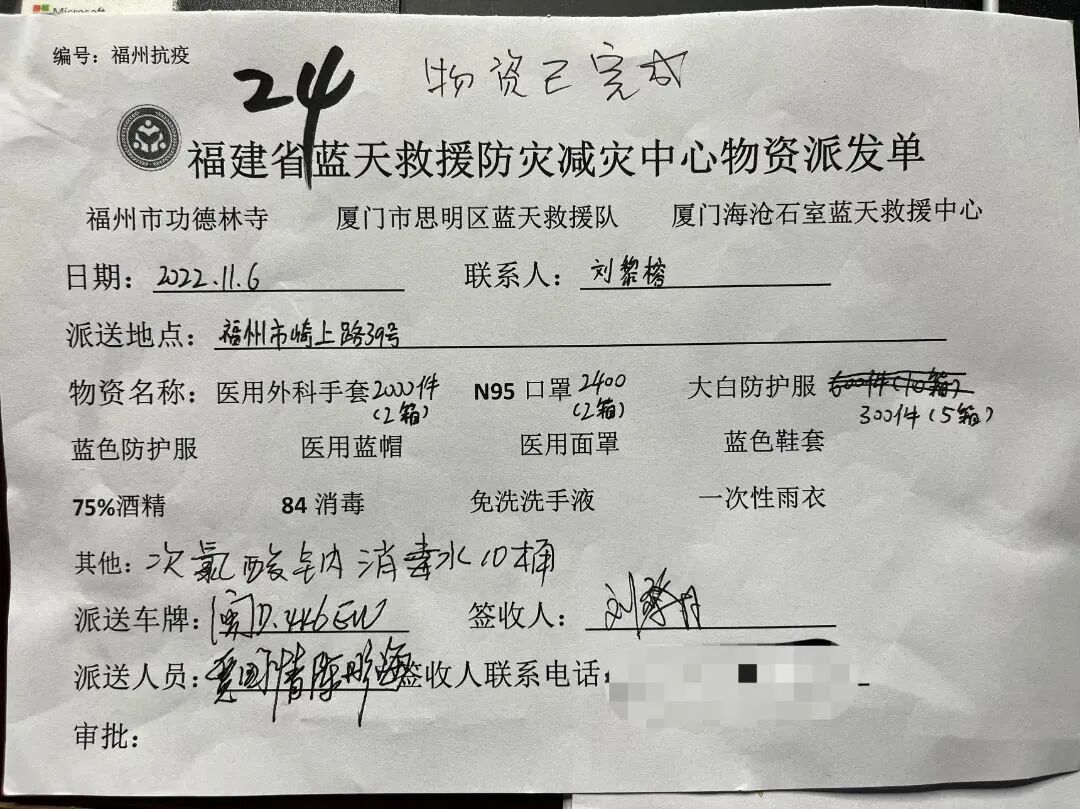 Microsoft
编号：福州抗疫
24 物资已完成
福建省蓝天救援防灾减灾中心物资派发单
福州市功德林寺 厦门市思明区蓝天救援队 厦门海沧石室蓝天救援中心
日期：2022.11.6 联系人：刘黎榕
派送地点：福州市崎上路39号
物资名称：医用外科手套2000件（2箱） N95 口罩2400（2箱） 大白防护服 600件（10箱） 300件（5箱）
蓝色防护服 医用蓝帽 医用面罩 蓝色鞋套
75%酒精 84 消毒 免洗洗手液 一次性雨衣
其他：次氯酸钠消毒水10桶
派送车牌：闽D.446EW 签收人：刘
派送人员： 签收人联系电话：
审批：